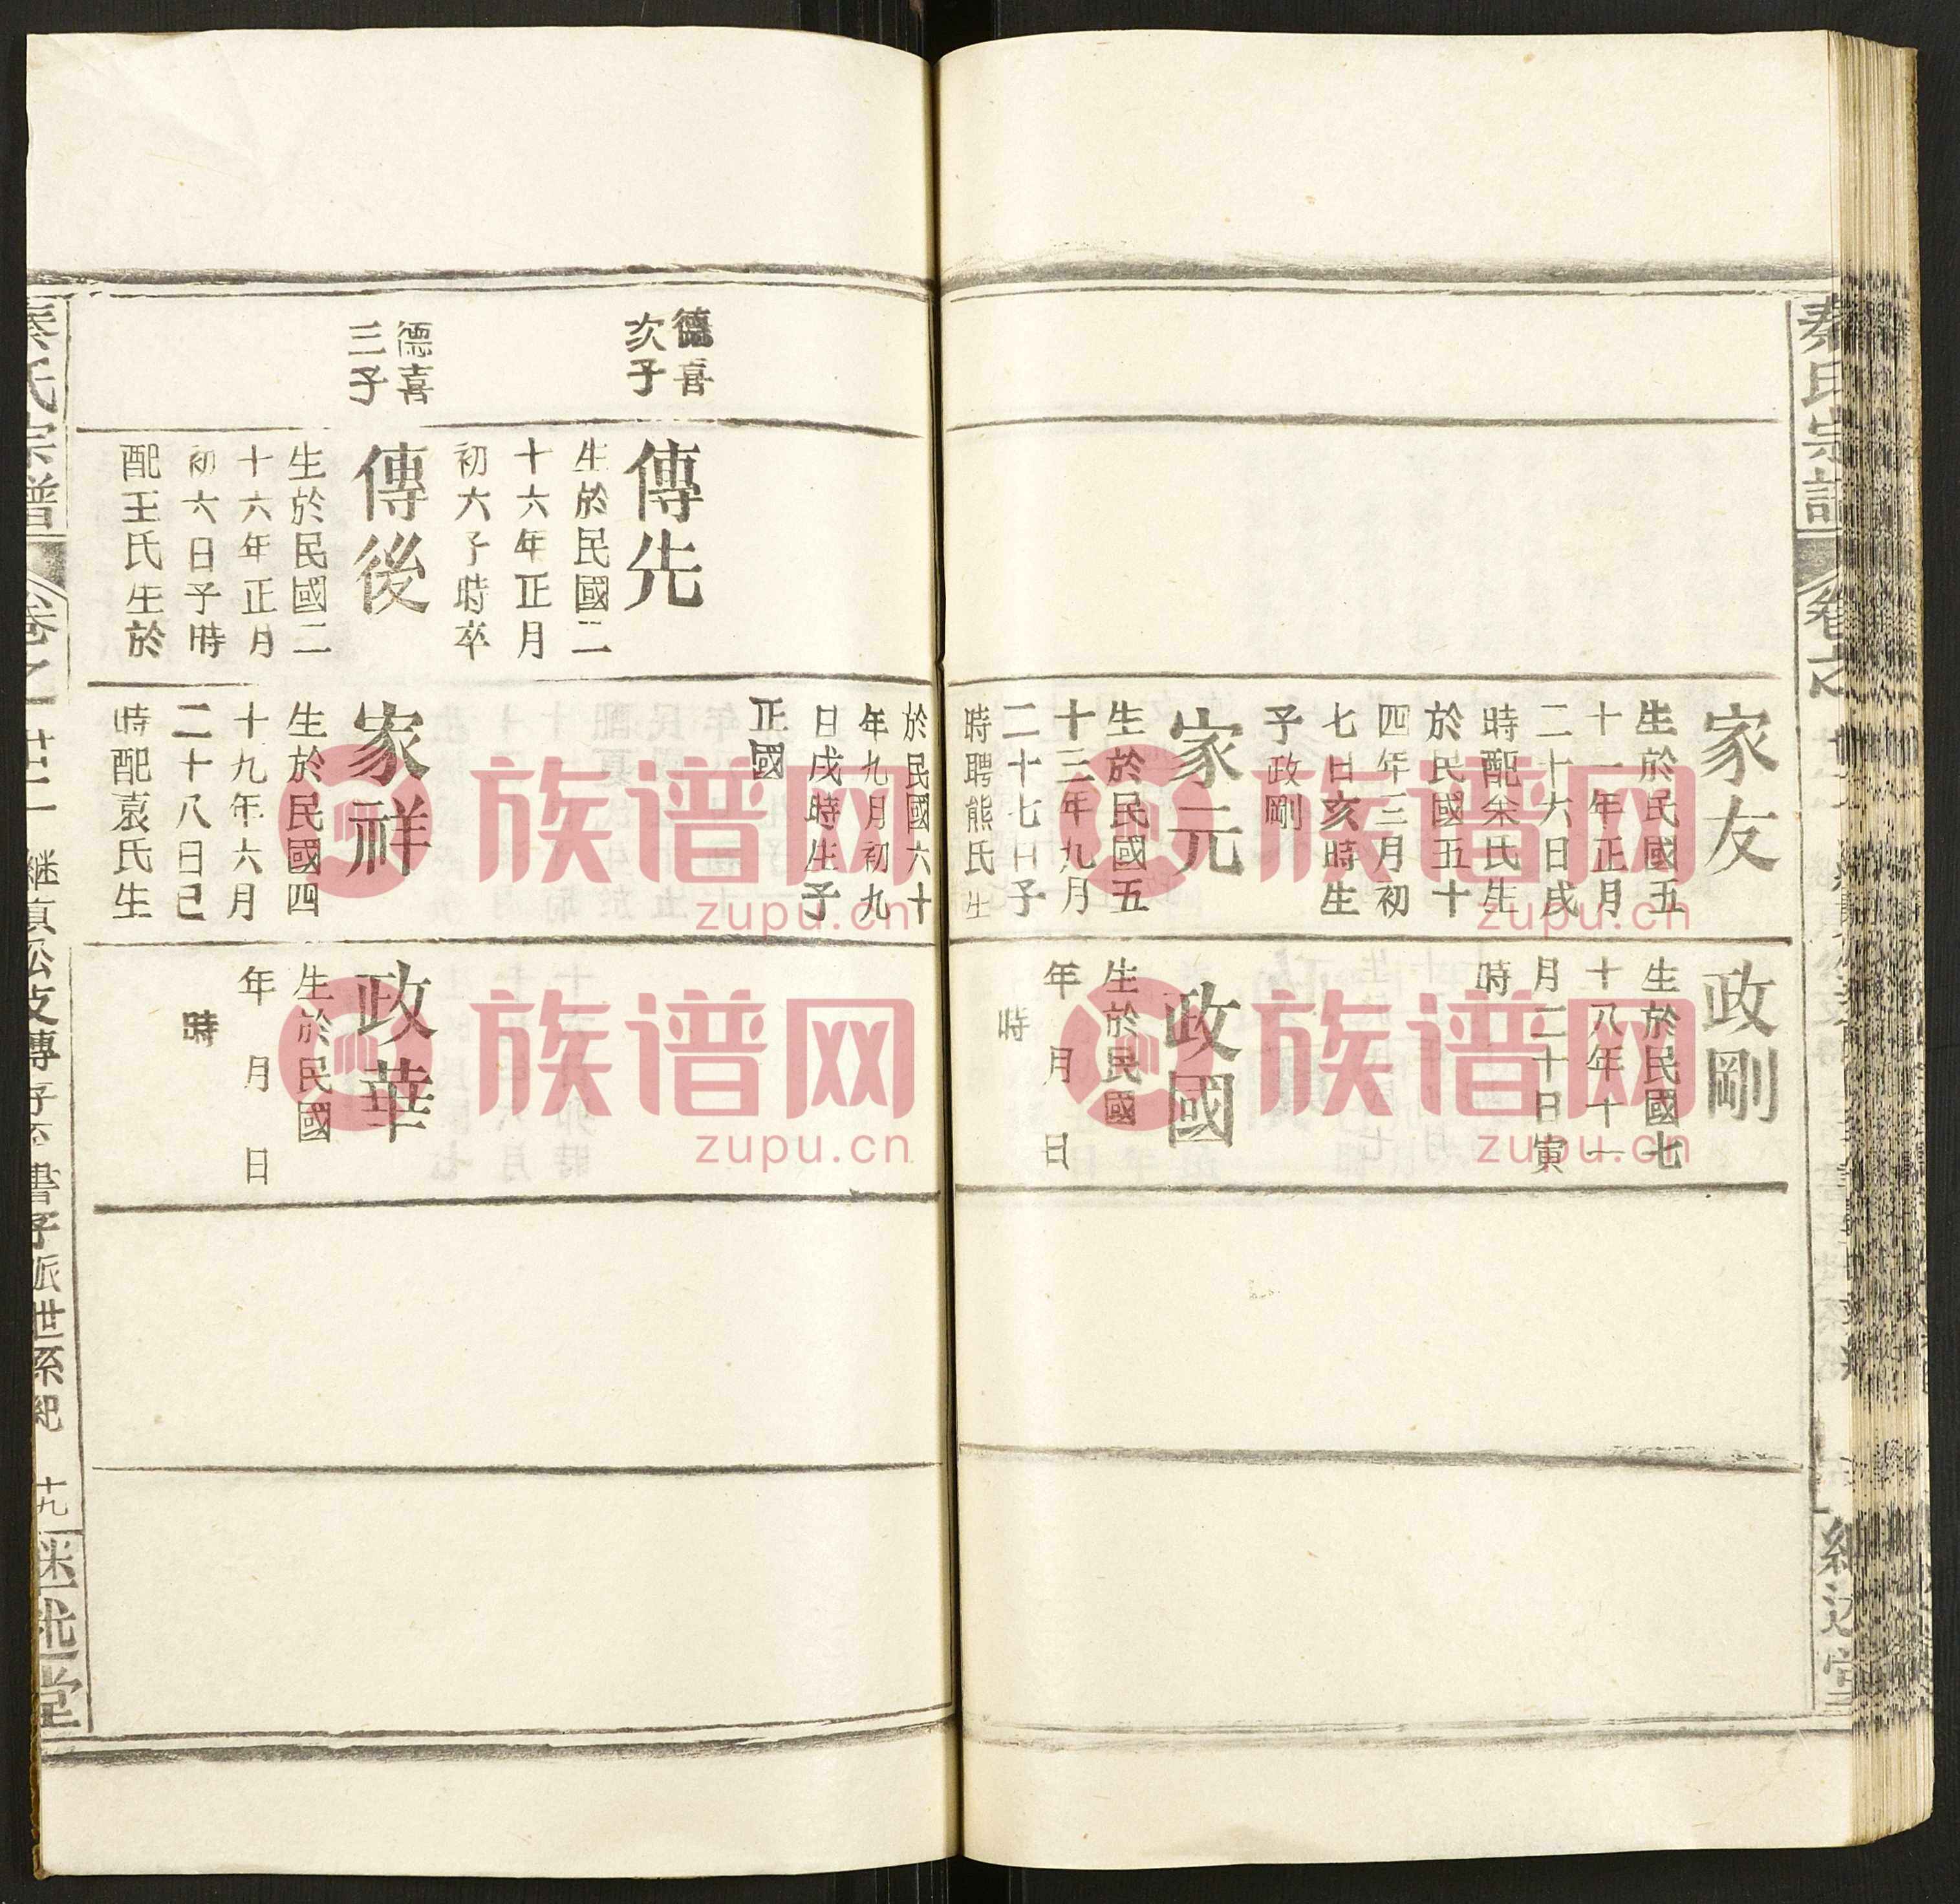 秦氏宗譜
家友
生於民國五
十一年正月
二十六日戌
時配余氏生
於民國五十
四年三月初
七日亥時生
子政剛
家元
生於民國五
十三年九月
二十七日子
時聘熊氏生
政剛
生於民國七
十八年十一
月二十日寅
時
政國
生於民國
年 月 日
時
德喜
次子
德喜
三子
傳先
生於民國二
十六年正月
初六子時卒
傳後
生於民國二
十六年正月
初六日子時
配王氏生於
於民國六十
年九月初九
日戌時生子
正國
家祥
生於民國四
十九年六月
二十八日巳
時配袁氏生
政華
生於民國
年 月 日
時
秦氏宗譜
卷之
世系紀
十九
堂
族谱网
zupu.cn
族谱网
zupu.cn
族谱网
zupu.cn
族谱网
zupu.cn